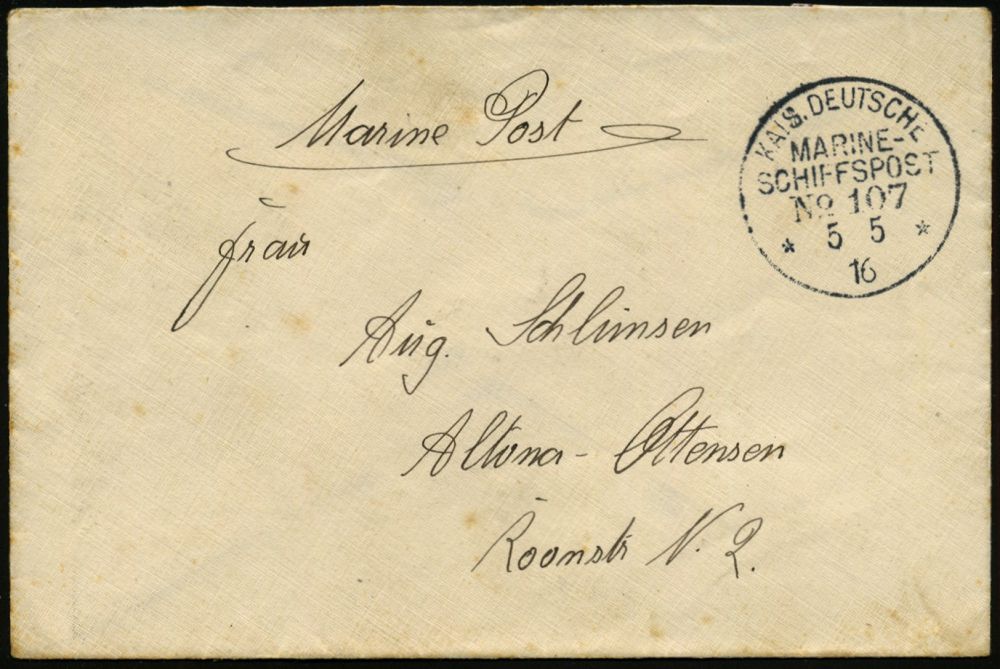 Marine Post
KAIS. DEUTSCHE
MARINE-
SCHIFFSPOST
No 107
* 5 5 *
16
Frau
Aug. Schlimsen
Altona-Ottensen
Roonstr N. 2.